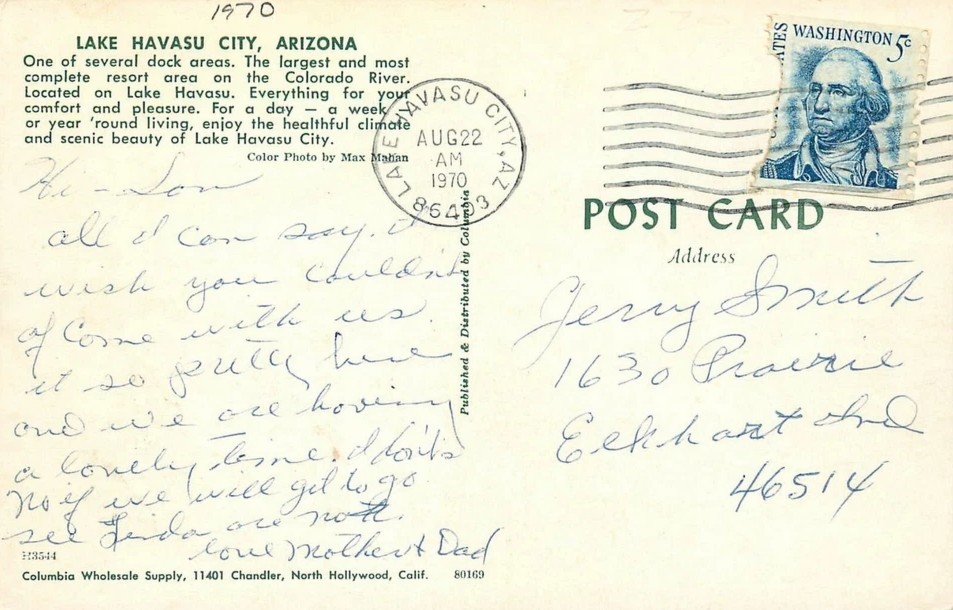 1970
LAKE HAVASU CITY, ARIZONA
One of several dock areas. The largest and most
complete resort area on the Colorado River.
Located on Lake Havasu. Everything for your
comfort and pleasure. For a day — a week
or year 'round living, enjoy the healthful climate
and scenic beauty of Lake Havasu City.
Color Photo by Max Mahan
Hi - Son
all I can say. I
wish you couldn't
of come with us
it so pretty here
and we are having
a lovely time. I don't
no if we will get to go
see Linda are not.
love Mother & Dad
H3544
Columbia Wholesale Supply, 11401 Chandler, North Hollywood, Calif. 80169
Published & Distributed by Columbia
LAKE HAVASU CITY, AZ
AUG 22
AM
1970
86403
WASHINGTON 5c
POST CARD
Address
Jerry Smith
1630 Prairie
Elkhart Ind
46514